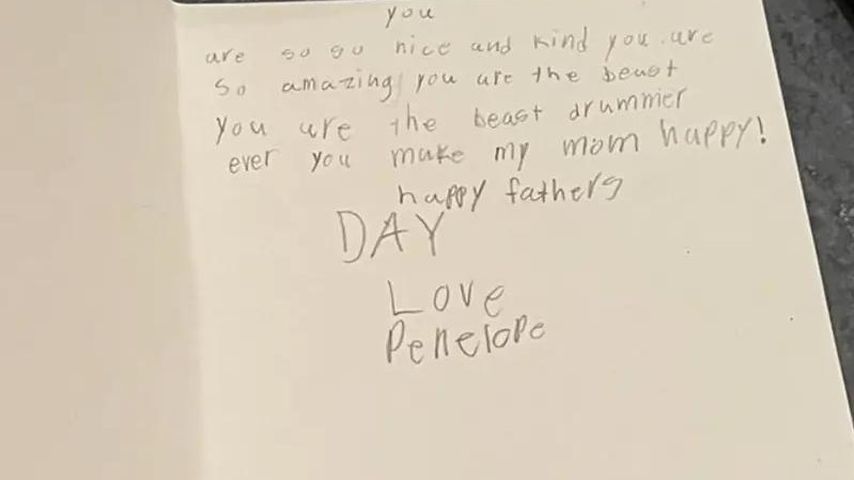 you
are so so nice and kind you are
so amazing you are the beast
you are the beast drummer
ever you make my mom happy!
happy fathers
DAY
Love
Penelope